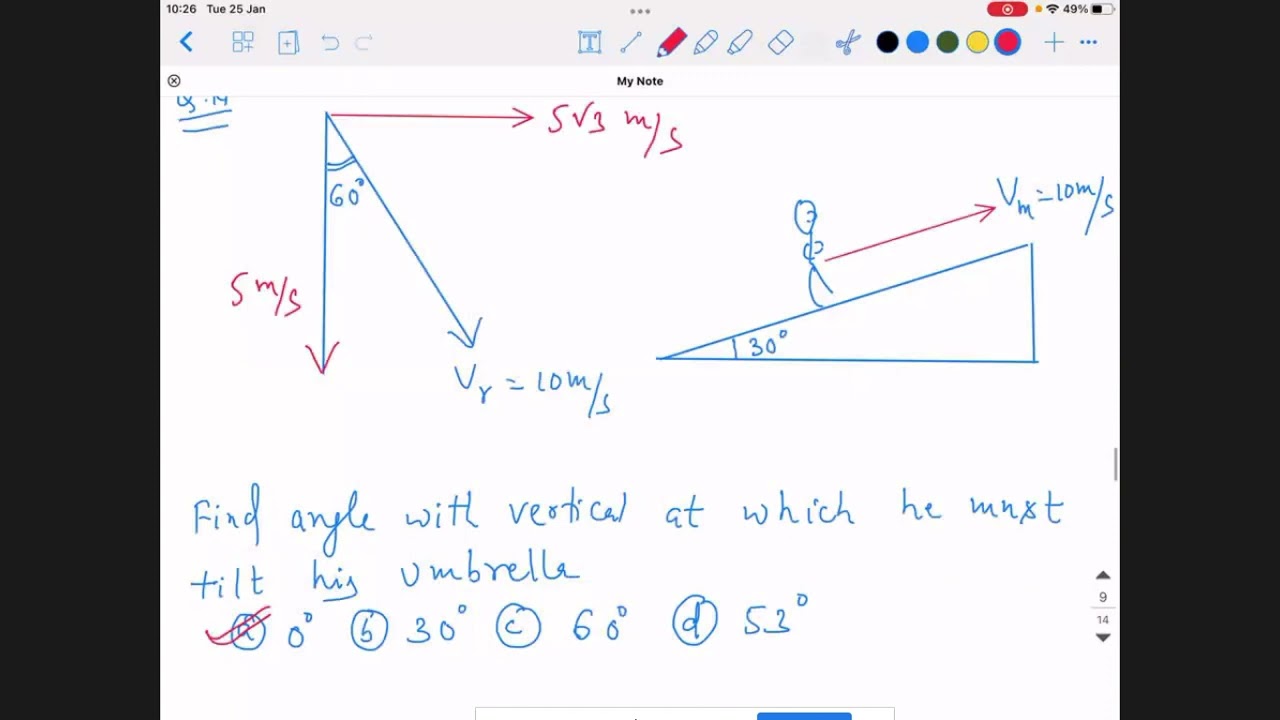 10:26 Tue 25 Jan
49%
My Note
5√3 m/s
60°
5 m/s
Vr = 10m/s
Vm = 10m/s
30°
Find angle with vertical at which he must
tilt his umbrella
a 0° b 30° c 60° d 53°
9
14